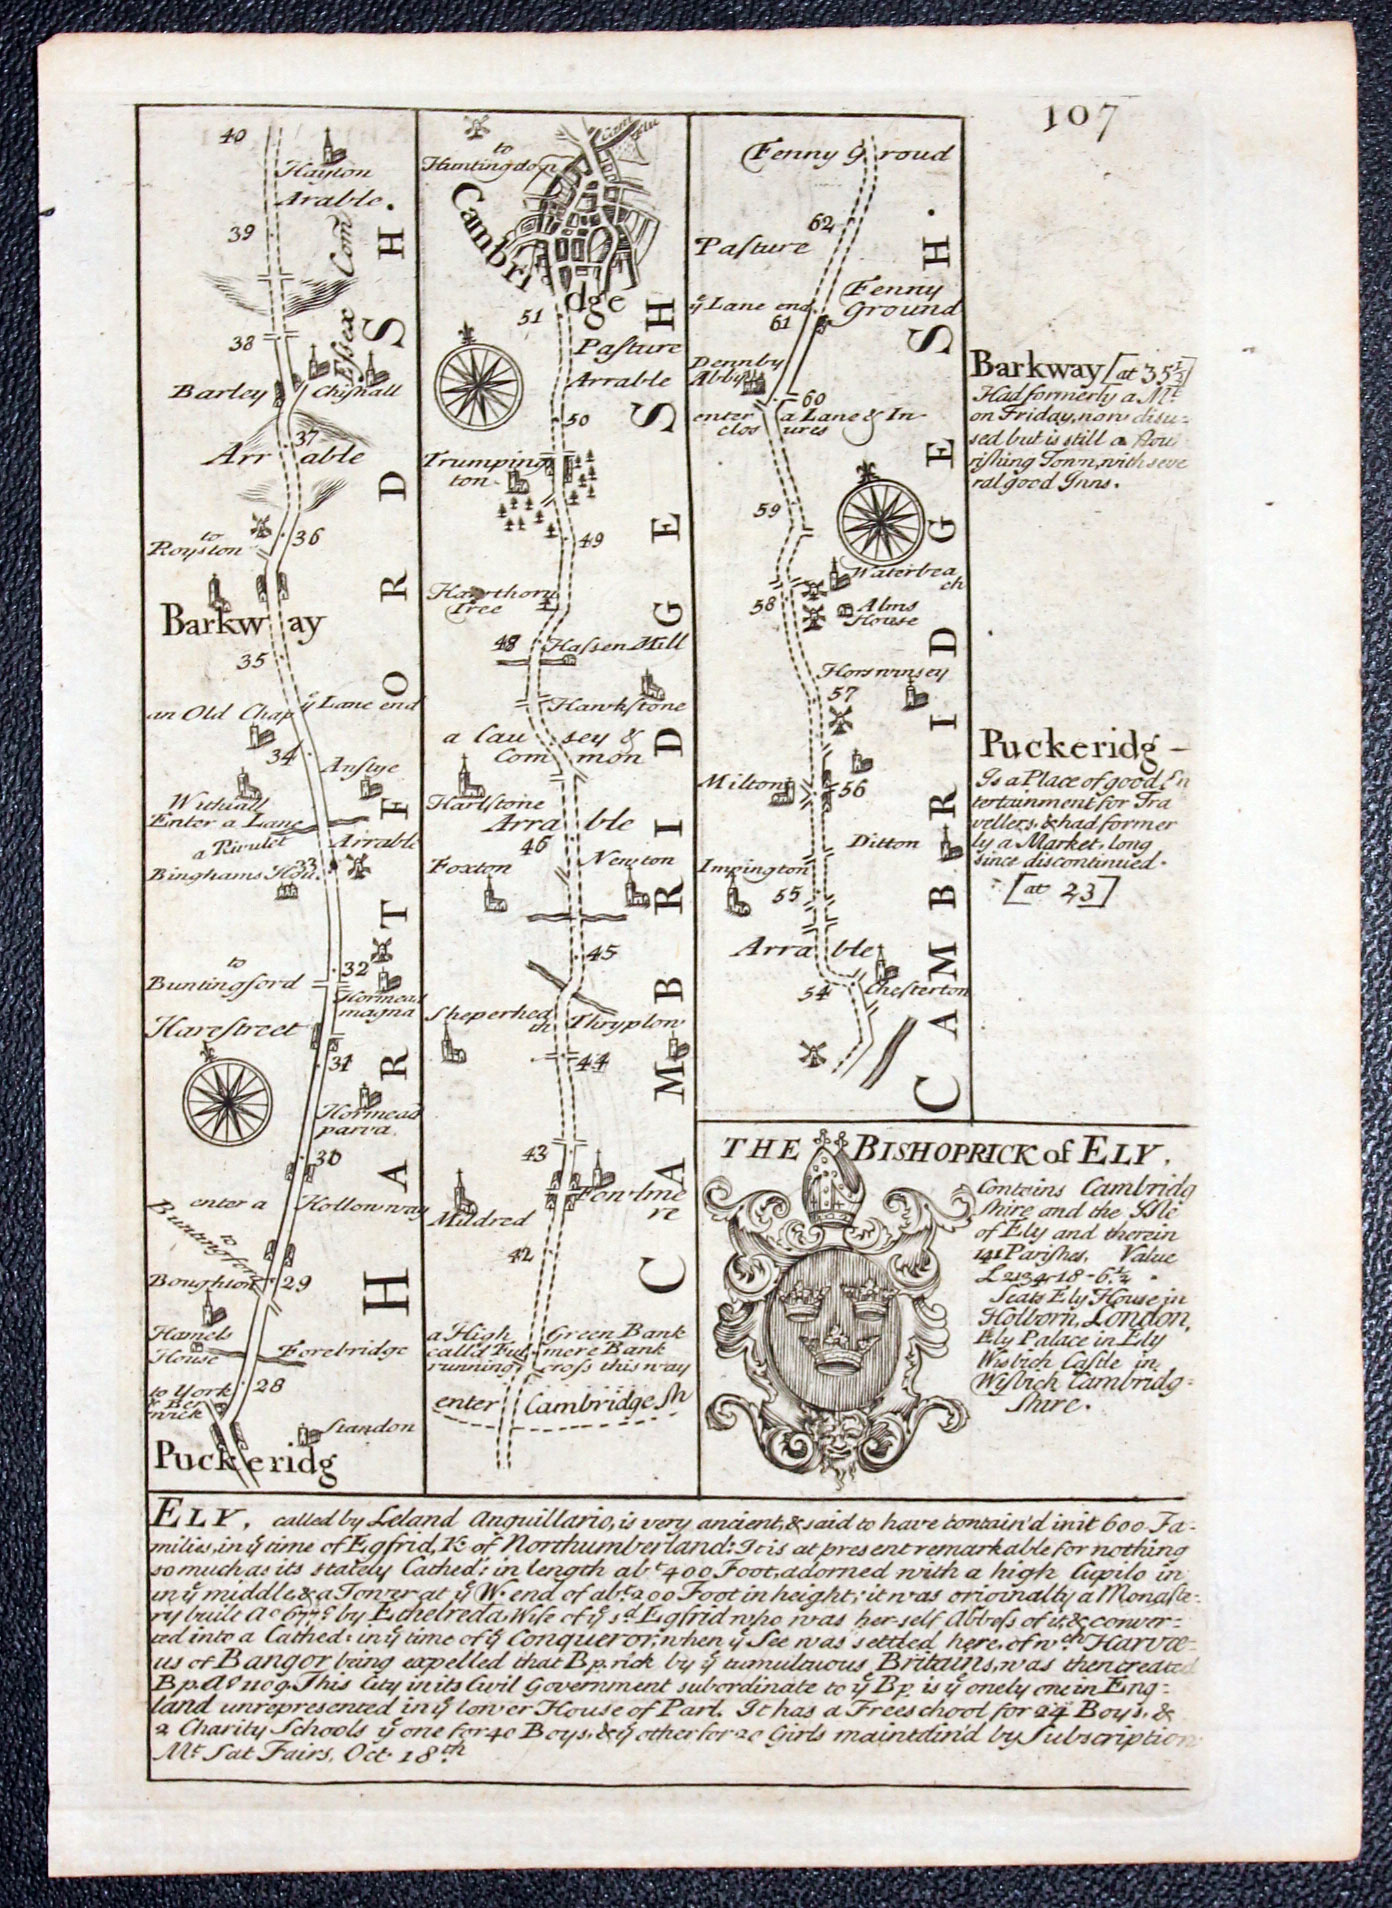 107
40
Hayton
Arable.
39
Essex Com
38
Barley
Chishall
37
Arr able
36
to
Royston
Barkway
35
an Old Chap
ÿ Lane end
34
Anstye
Withiall
Enter a Lane
a Rivulet
Arrable
33
Binghams Hou.
32
to
Buntingford
Hormead
magna
Harestreet
31
Hormead
parva.
30
enter a Holloway
to
Buntingford
Boughton
29
Hamels
House
Forebridge
28
to York
& Ber
wick
Standon
Puckeridg
HARTFORDSH.
to
Huntingdon
Cam flu
Cambridge
51
Pasture
Arrable
50
Trumping
ton
49
Hawthorn
Tree
48
Hassen Mill
Hawkstone
a Cau sey &
Com mon
Harlstone
Arra ble
46
Newton
Foxton
45
Sheperhea
th
Thryplow
44
43
Fowlme
re
Mildred
42
a High Green Bank
call'd Ful mere Bank
running cross this way
enter Cambridge Sh
CAMBRIDGESH
Fenny Groud
62
Pasture
Fenny
Ground
ÿ Lane end
61
Dennby
Abby
60
enter a Lane & In
clos ures
59
Waterbea
ch
58
Alms
House
Horswinsey
57
Milton
56
Ditton
Impington
55
Arra ble
54
Chesterton
CAMBRIDGESH.
Barkway [at 35½]
Had formerly a Mt.
on Friday, now disu=
sed but is still a flou
rishing Town, with seve
ral good Inns.
Puckeridg –
Is a Place of good En
tertainment for Tra
vellers, & had former
ly a Market, long
since discontinued.
[at 23]
THE BISHOPRICK of ELY,
Contains Cambridg
shire and the Isle
of Ely and therein
141 Parishes. Value
£2134-18-6½.
Seats Ely House in
Holborn, London,
Ely Palace in Ely
Wisbich Castle in
Wisbich Cambridg=
shire.
ELY, called by Leland Anguillario, is very ancient, & said to have contain'd in it 600 Fa-
milies, in ÿ time of Egfrid, K. of Northumberland: It is at present remarkable for nothing
so much as its stately Cathed: in length abt. 400 Foot, adorned with a high Cupilo in
in ÿ middle, & a Tower at ÿ W. end of abt. 200 Foot in height; it was originally a Monaste-
ry built Ao 677 by Etheldreda, Wife of ÿ sd. Egfrid who was her self Abbess of it, & conver=
ted into a Cathed: in ÿ time of ÿ Conqueror; when ÿ See was settled here, of wch. Harvæ-
us of Bangor being expelled that Bp.rick by ÿ tumultuous Britains, was then created
Bp. Ao 1109. This City in its Civil Government subordinate to ÿ Bp. is ÿ onely one in Eng=
land unrepresented in ÿ lower House of Parl. It has a Free school for 24 Boys, &
2 Charity Schools ÿ one for 40 Boys, & ÿ other for 20 Girls maintain'd by Subscription
Mt. Sat Fairs, Oct. 18th